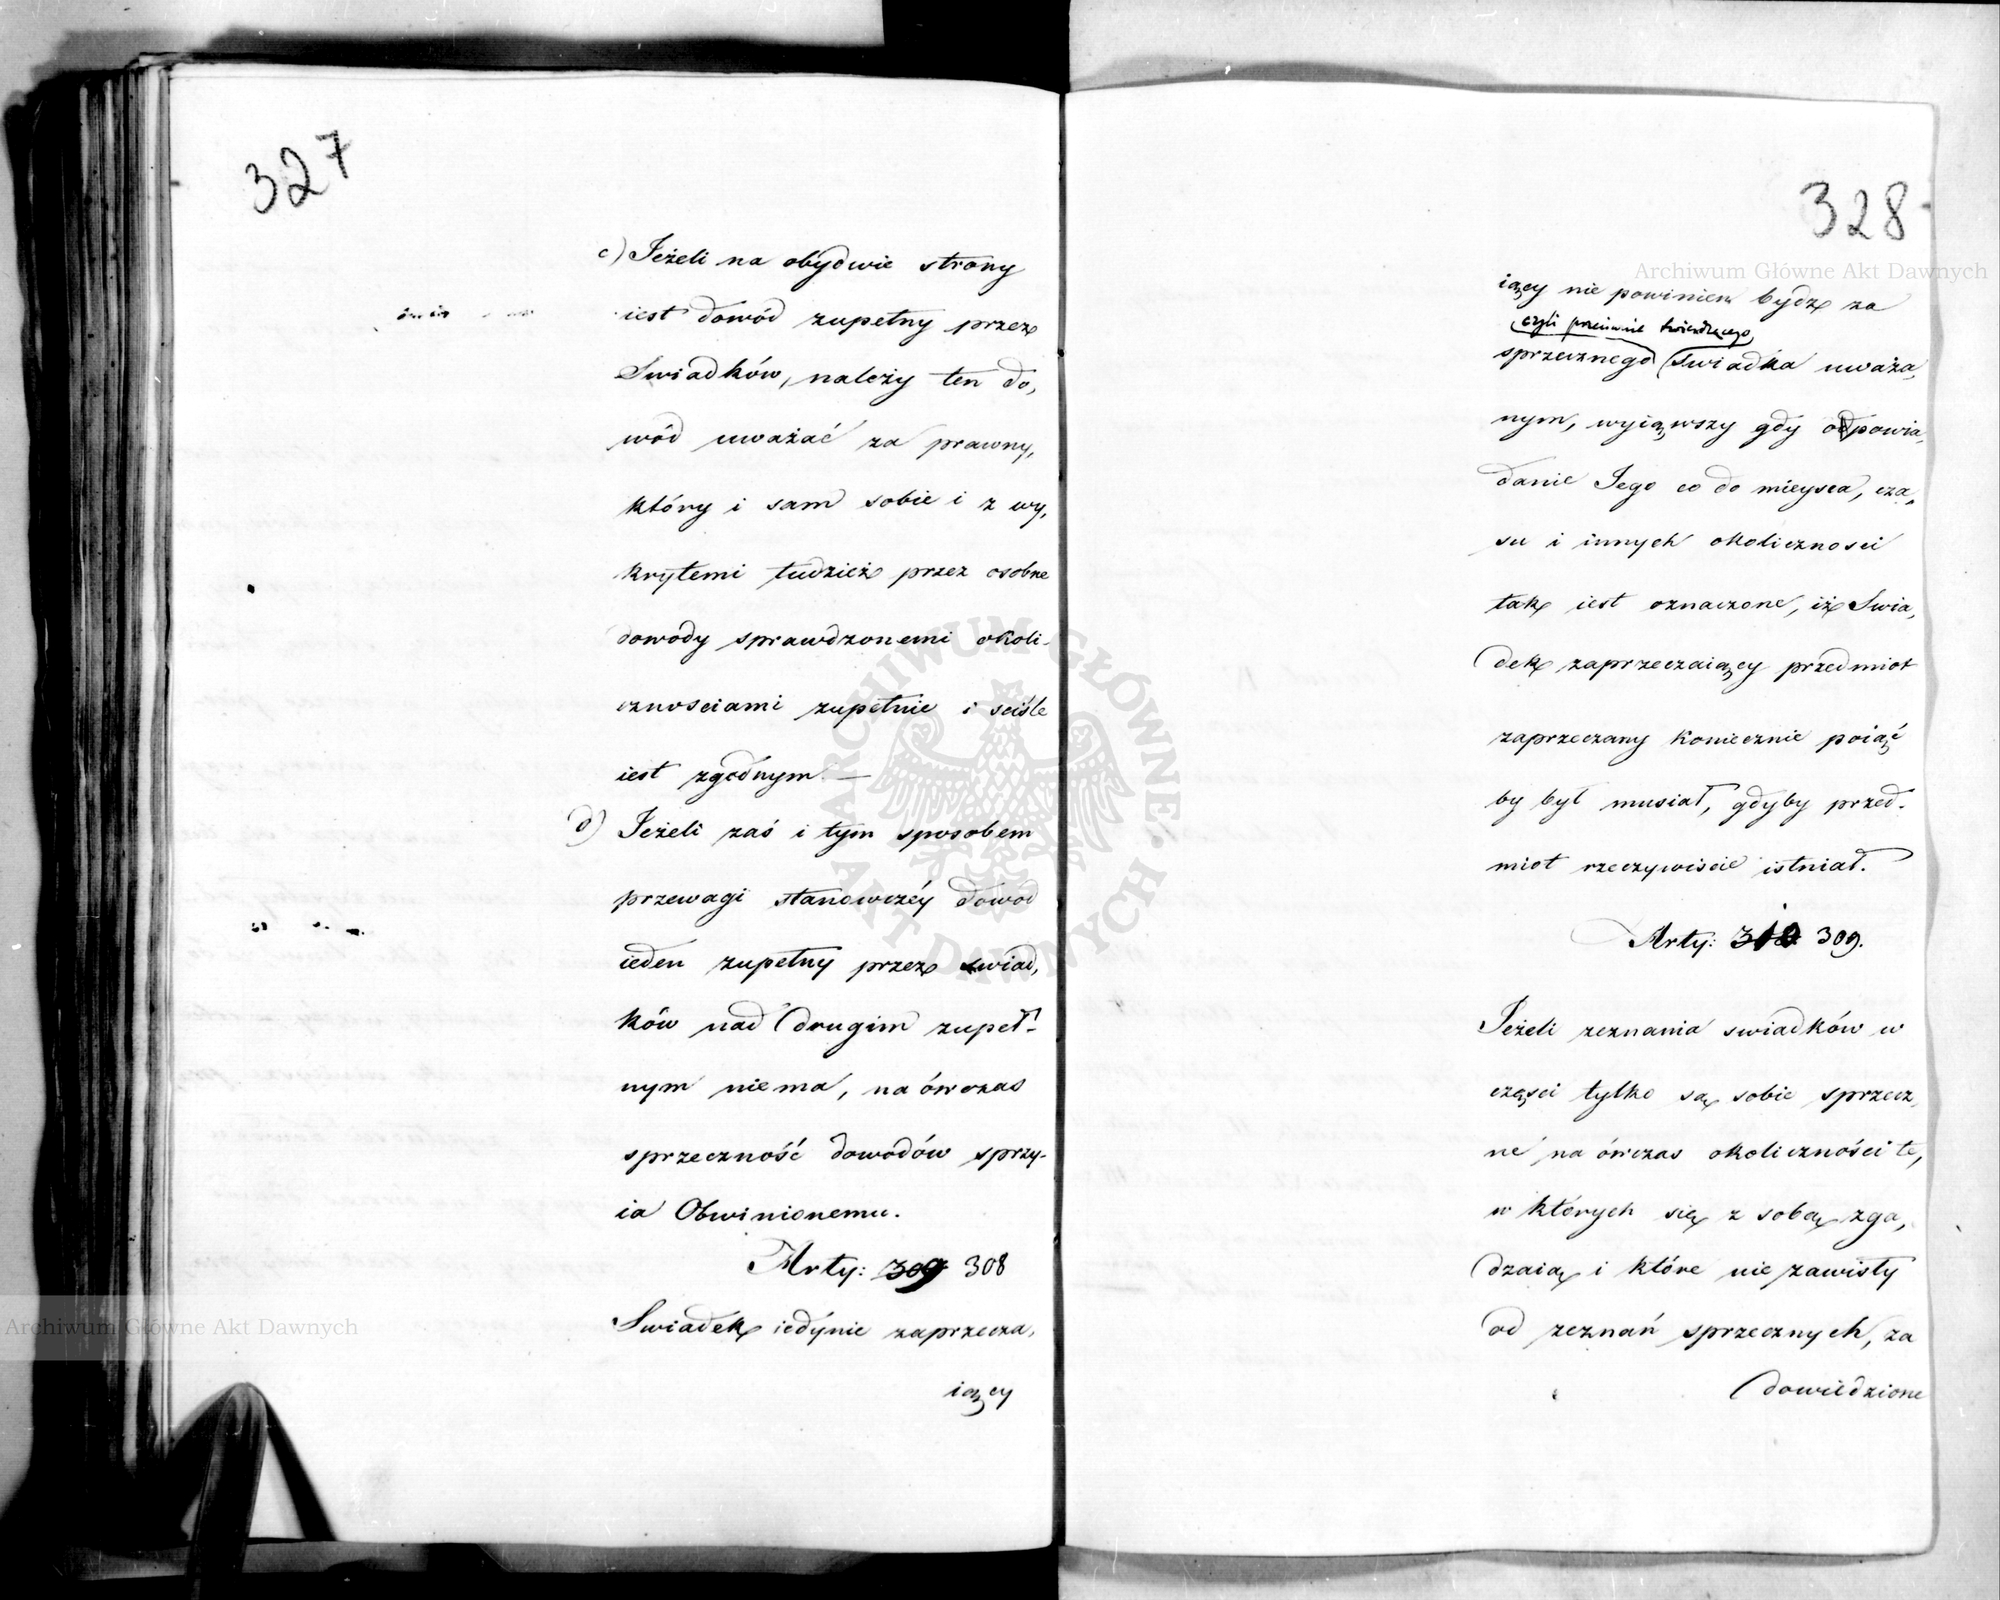 327
c) Jeżeli na obydwie strony
iest dowód zupełny przez
Swiadków, należy ten do,
wód uważać za prawny,
który i sam sobie i z wy,
krytemi tudzież przez osobne
dowody sprawdzonemi okoli-
cznosciami zupełnie i sciśle
iest zgodnym —
d) Jeżeli zaś i tym sposobem
przewagi stanowczéy dowod
ieden zupełny przez swiad,
ków nad drugim zupeł-
nym niema, na ówczas
sprzeczność dowodów sprzy-
ia Obwinionemu.
Arty: 309 308
Swiadek iedynie zaprzecza,
iący
328
iący nie powinien bydź za
czyli przeciwnie twierdzącego
sprzecznego swiadka uważa,
nym, wyiąwszy gdy odpowia,
danie Jego co do mieysca, cza,
su i innych okolicznosci
tak iest oznaczone, iż Swia,
dek zaprzeczaiący przedmiot
zaprzeczany koniecznie poiąć
by był musiał, gdyby przed-
miot rzeczywiscie istniał.
Arty: 310 309.
Jeżeli zeznania swiadków w
częsci tylko są sobie sprzecz,
né na ówczas okoliczności te,
w których się z sobą zga,
dzaią i które nie zawisły
od zeznań sprzecznych, za
dowiedzione
Archiwum Główne Akt Dawnych
Archiwum Główne Akt Dawnych
ARCHIWUM GŁÓWNE AKT DAWNYCH